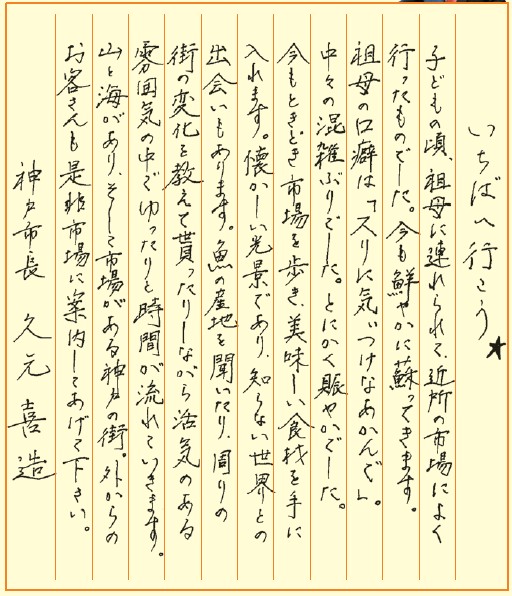 いちばへ行こう★
子どもの頃、祖母に連れられて、近所の市場によく
行ったものでした。今も鮮やかに蘇ってきます。
祖母の口癖は「スリに気ぃつけなあかんで」。
中々の混雑ぶりでした。とにかく賑やかでした。
今もときどき市場を歩き、美味しい食材を手に
入れます。懐かしい光景であり、知らない世界との
出会いもあります。魚の産地を聞いたり、周りの
街の変化を教えて貰ったりしながら活気のある
雰囲気の中でゆったりと時間が流れていきます。
山と海があり、そして市場がある神戸の街。外からの
お客さんも是非市場に案内してあげて下さい。
神戸市長 久元喜造